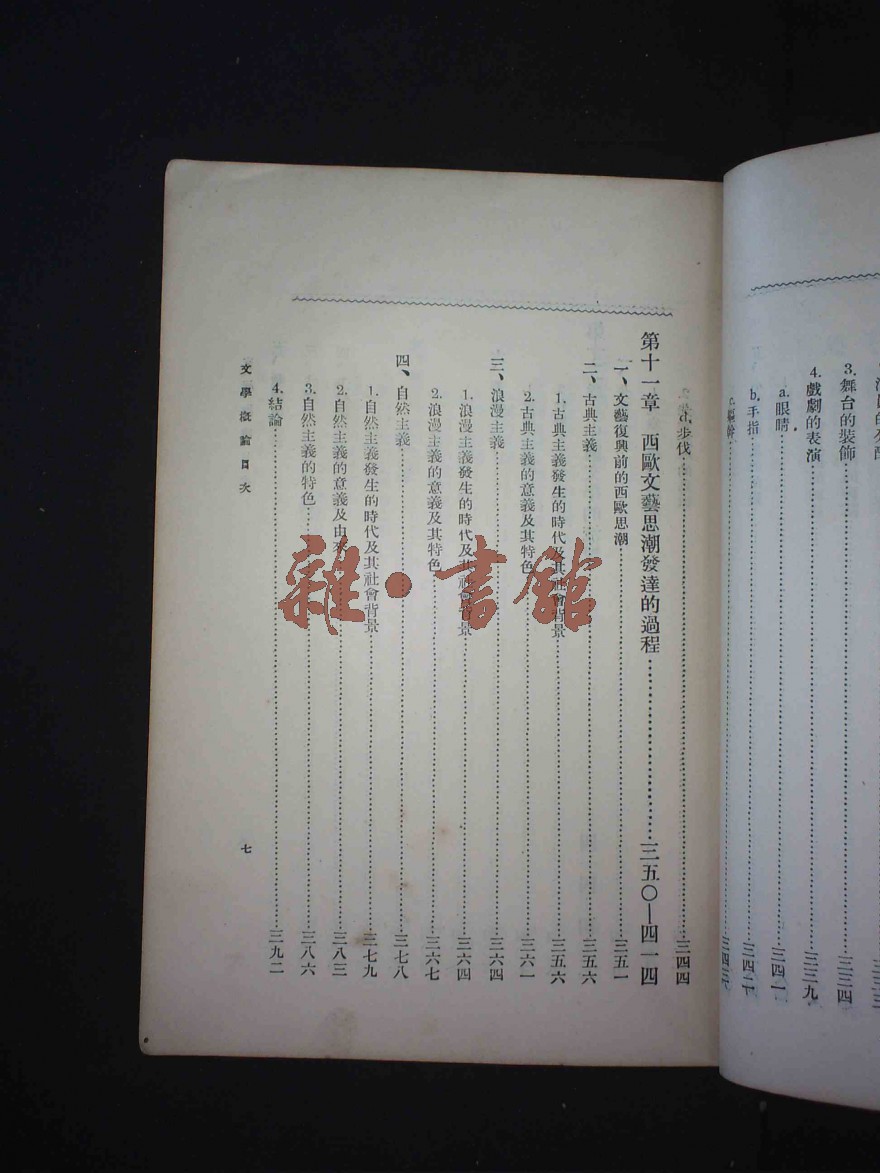 3. 舞台的裝飾……三三四
4. 戲劇的表演……三三九
a. 眼睛……三四一
b. 手指……三四二
c. 軀幹……
d. 步伐……三四四
第十一章 西歐文藝思潮發達的過程……三五〇—四一四
一、文藝復興前的西歐思潮……三五一
二、古典主義……三五六
1. 古典主義發生的時代及其社會背景……三五六
2. 古典主義的意義及其特色……三六一
三、浪漫主義……三六四
1. 浪漫主義發生的時代及其社會背景……三六四
2. 浪漫主義的意義及其特色……三六七
四、自然主義……三七八
1. 自然主義發生的時代及其社會背景……三七九
2. 自然主義的意義及由來……三八三
3. 自然主義的特色……三八六
4. 結論……三九二
文學概論目次 七
雜·書館